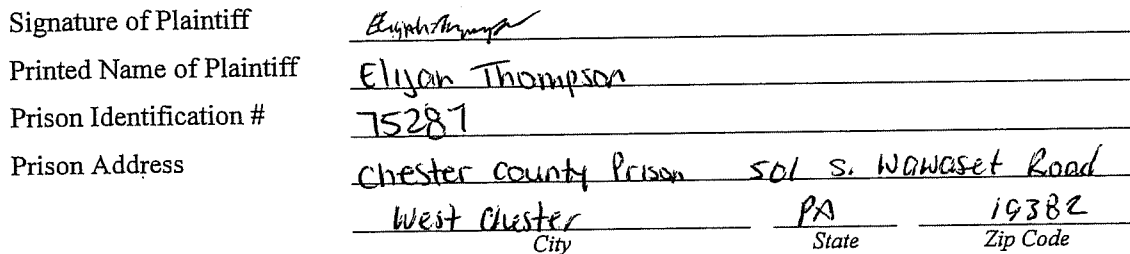 Signature of Plaintiff
Printed Name of Plaintiff Elijah Thompson
Prison Identification # 75287
Prison Address Chester County Prison 501 S. Wawaset Road
West Chester PA 19382
City State Zip Code